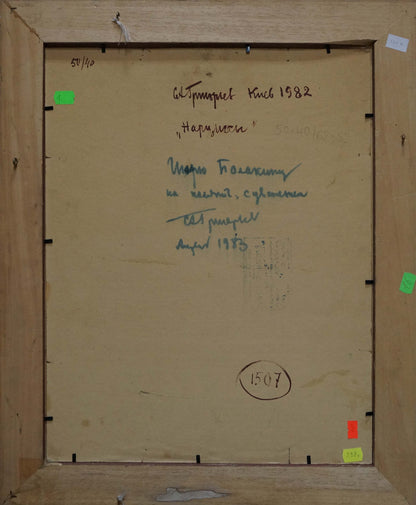 50/40
САГригорьев Киев 1982
„Нарциссы"
Игорю Балакину
на память, с уважением
САГригорьев
Апрель 1983
1507